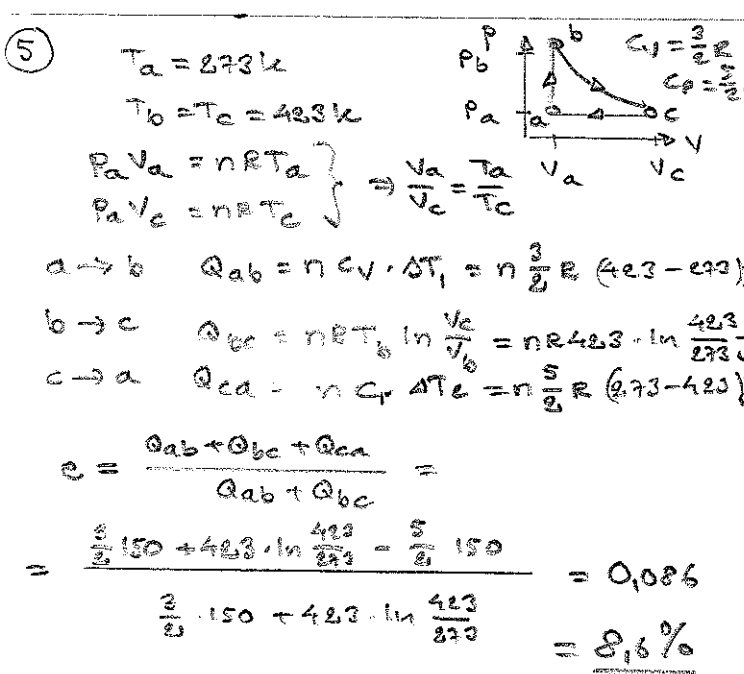 5
T_a = 273 K
T_b = T_c = 423 K
P_a V_a = nRT_a
P_a V_c = nRT_c
⇒ V_a/V_c = T_a/T_c
P
P_b
b
P_a
a
c
V
V_a
V_c
C_V = 3/2 R
C_P = 5/2
a → b Q_ab = n C_V · ΔT_1 = n 3/2 R (423 - 273)
b → c Q_bc = nRT_b ln V_c/V_b = nR423 · ln 423/273
c → a Q_ca = n C_P ΔT_2 = n 5/2 R (273 - 423)
e = (Q_ab + Q_bc + Q_ca)/(Q_ab + Q_bc) =
= (3/2 150 + 423 · ln 423/273 - 5/2 150)/(3/2 · 150 + 423 · ln 423/273) = 0,086
= 8,6%